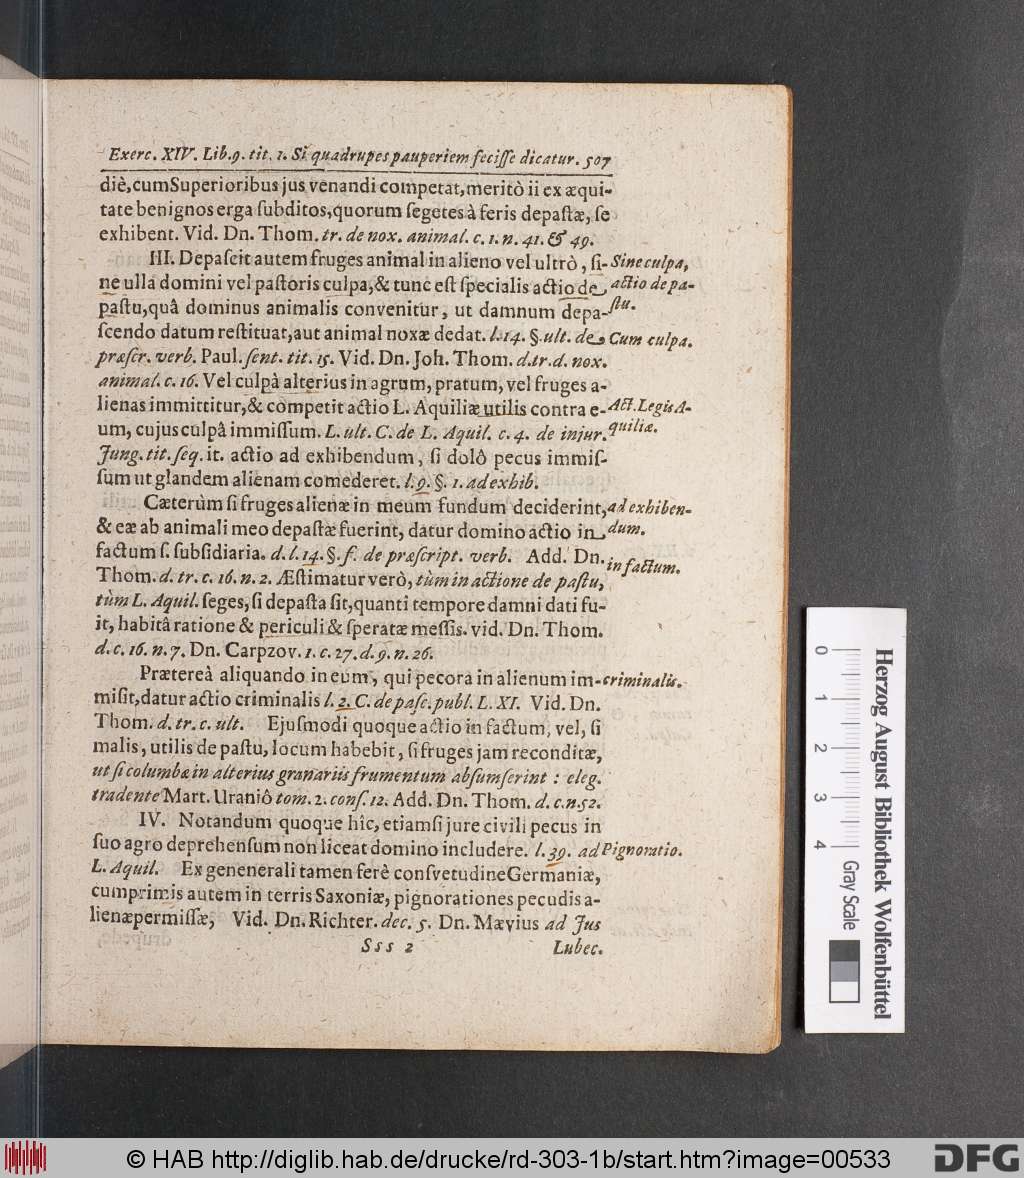 Exerc. XIV. Lib. 9. tit. 1. Si quadrupes pauperiem feciſſe dicatur. 507
diè, cum Superioribus jus venandi competat, meritò ii ex æqui-
tate benignos erga ſubditos, quorum ſegetes à feris depaſtæ, ſe
exhibent. Vid. Dn. Thom. tr. de nox. animal. c. 1. n. 41. & 49.
III. Depaſcit autem fruges animal in alieno vel ultrò, ſi- Sine culpa,
ne ulla domini vel paſtoris culpa, & tunc eſt ſpecialis actio de actio de pa-
paſtu, quâ dominus animalis convenitur, ut damnum depa- ſtu.
ſcendo datum reſtituat, aut animal noxæ dedat. l. 14. §. ult. de Cum culpa.
præſcr. verb. Paul. ſent. tit. 15. Vid. Dn. Joh. Thom. d. tr. d. nox.
animal. c. 16. Vel culpâ alterius in agrum, pratum, vel fruges a-
lienas immittitur, & competit actio L. Aquiliæ utilis contra e- Act. Legis A-
um, cujus culpâ immiſſum. L. ult. C. de L. Aquil. c. 4. de injur. quiliæ.
Jung. tit. ſeq. it. actio ad exhibendum, ſi dolô pecus immiſ-
ſum ut glandem alienam comederet. l. 9. §. 1. ad exhib.
Cæterùm ſi fruges alienæ in meum fundum deciderint, ad exhiben-
& eæ ab animali meo depaſtæ fuerint, datur domino actio in dum.
factum ſ. ſubſidiaria. d. l. 14. §. f. de præſcript. verb. Add. Dn. in factum.
Thom. d. tr. c. 16. n. 2. Æſtimatur verò, tùm in actione de paſtu,
tùm L. Aquil. ſeges, ſi depaſta ſit, quanti tempore damni dati fu-
it, habitâ ratione & periculi & ſperatæ meſſis. vid. Dn. Thom.
d. c. 16. n. 7. Dn. Carpzov. 1. c. 27. d. 9. n. 26.
Prætereà aliquando in eum, qui pecora in alienum im- criminalis.
miſit, datur actio criminalis l. 2. C. de paſc. publ. L. XI. Vid. Dn.
Thom. d. tr. c. ult. Ejuſmodi quoque actio in factum, vel, ſi
malis, utilis de paſtu, locum habebit, ſi fruges jam reconditæ,
ut ſi columbæ in alterius granariis frumentum abſumſerint : eleg.
tradente Mart. Uraniô tom. 2. conſ. 12. Add. Dn. Thom. d. c. n. 52.
IV. Notandum quoque hîc, etiamſi jure civili pecus in
ſuo agro deprehenſum non liceat domino includere. l. 39. ad Pignoratio.
L. Aquil. Ex genenerali tamen ferè conſvetudine Germaniæ,
cumprimis autem in terris Saxoniæ, pignorationes pecudis a-
lienæ permiſſæ, Vid. Dn. Richter. dec. 5. Dn. Mævius ad Jus
Sss 2 Lubec.
0 1 2 3 4 Gray Scale
Herzog August Bibliothek Wolfenbüttel
© HAB http://diglib.hab.de/drucke/rd-303-1b/start.htm?image=00533
DFG